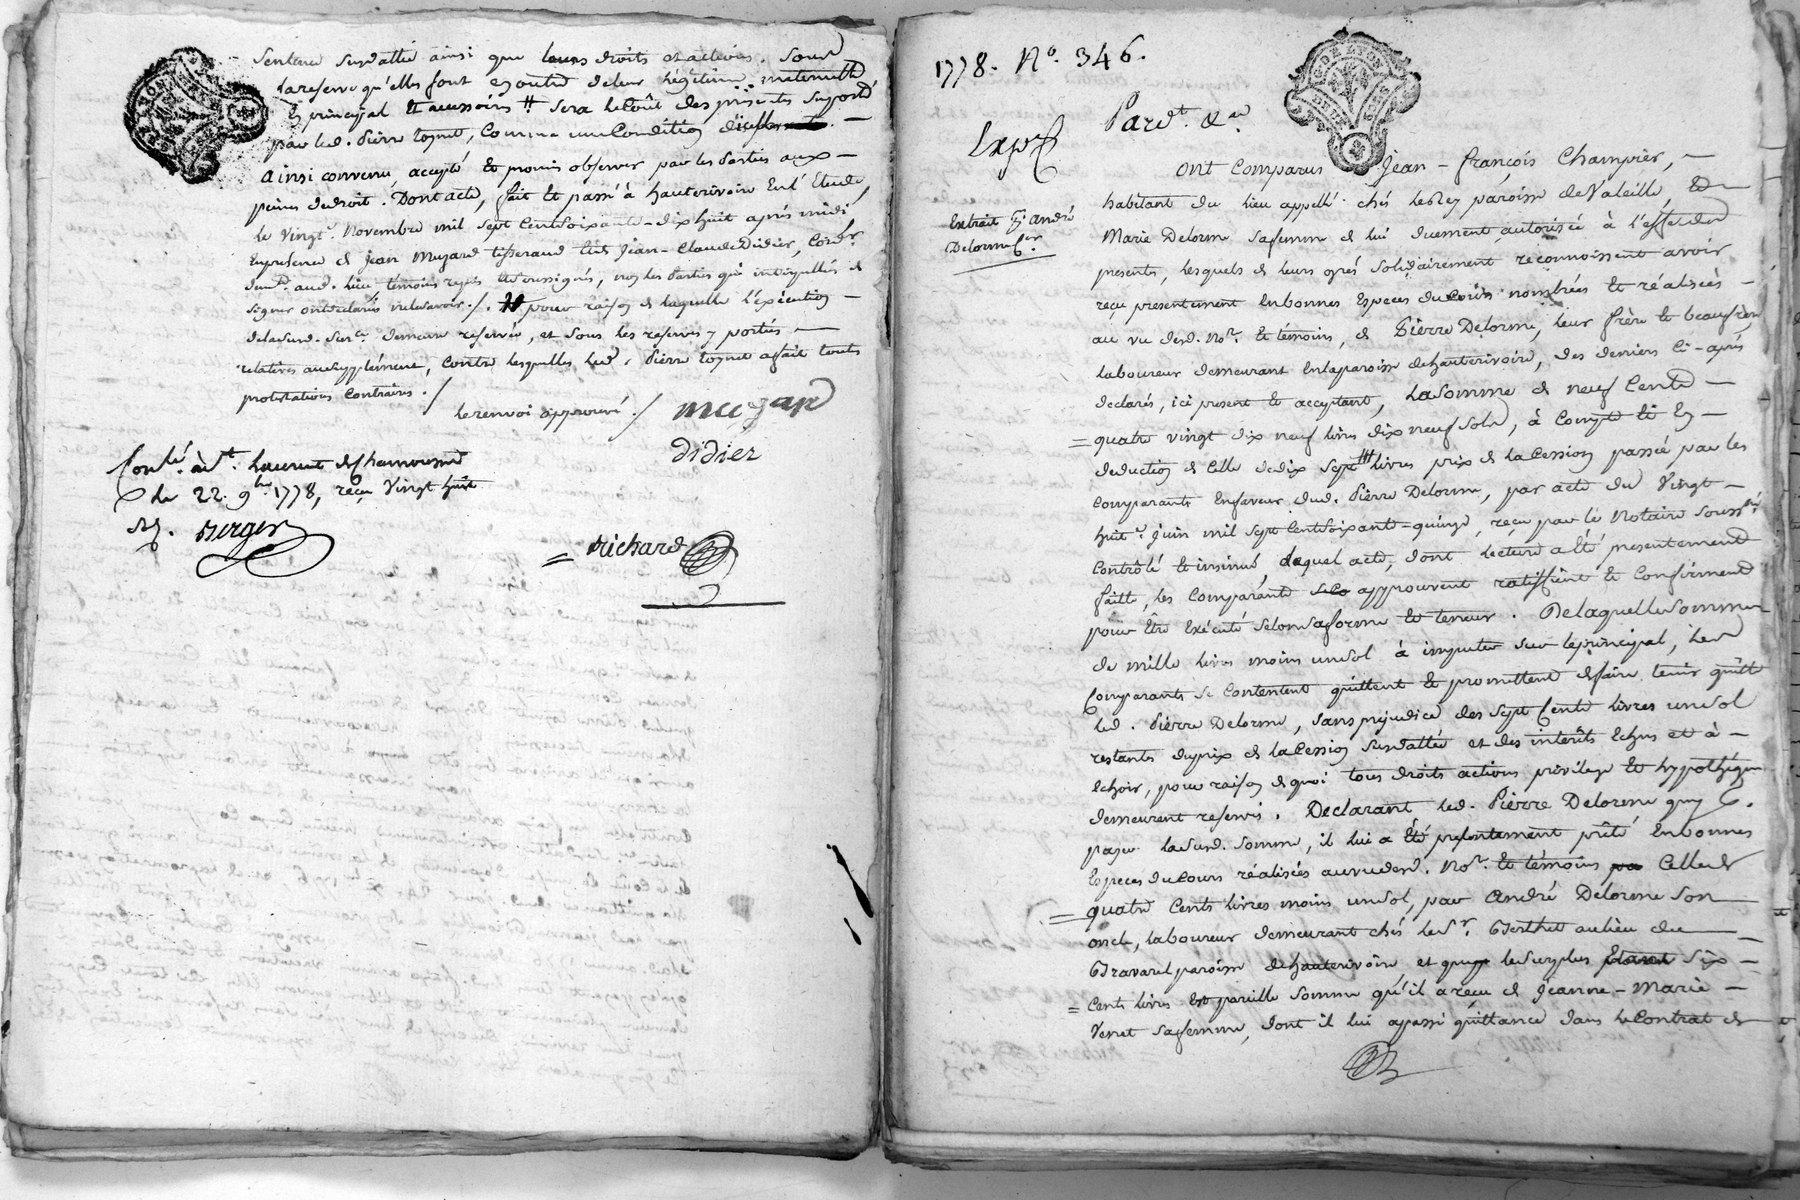 Sentence Susdattée ainsi que leurs droits et actions. Sous
la reserve qu'elles font en outre de leur légitime maternelle
En principal et accessoires # Sera le Coût des présentes Supporté
par led. Pierre Coynet, Comme une Condition d'icelles —
Ainsi convenu, accepté et promis observer par les Parties aux —
peines de droit. Dont acte, fait et passé à hauterivoire En l'Etude,
le Vingt.^e Novembre mil Sept Cent Soixante-dix huit après midi,
En présence de Jean Mugard tisserand et de Jean-Claude Didier, Cord.^r
dem.^t aud. lieu témoins requis et soussignés, non les Parties qui interpellées de
signer ont déclaré ne le savoir ./. # pour raison de laquelle l'exécution —
de la Susd. Sen.^ce demeure reservée, et Sous les reserves y portées —
relatives au Supplément, Contre lesquelles led. Pierre Coynet a fait toutes
protestations Contraires ./
le renvoi approuvé ./ mugard
didier
Conlé. à S.^t Laurent de Chamousset
le 22. 9.^bre 1778, reçu Vingt huit
Berger
= Richard
1778. N.^o 346.
GEN DE LYON
Pard.^t &.^a
Exp.^é
Extrait p.^r andré
Delorme
Ont Comparus Jean-françois Champier, —
habitant du lieu appellé chés le Rey paroisse de Valeille, Et
Marie Delorme Sa femme de lui duement autorisée à l'effet des
presentes, lesquels de leurs grés Solidairement reconnoissent avoir
reçu presentement En bonnes Especes du Cours nombrées Et réalisées —
au vu desd. No.^re Et témoins, de Pierre Delorme, leur frère Et beaufrère
laboureur demeurant En la paroisse de hauterivoire, des deniers Ci-après
declarés, ici present Et acceptant, la Somme de neuf Cents —
= quatre vingt dix neuf livres dix neuf Sols, à Compte Et En —
deduction de Celle de dix Sept livres prix de la Cession passée par les
Comparants En faveur dud. Pierre Delorme, par acte du Vingt —
huit.^e juin mil Sept Cent Soixante-quinze, reçu par le Notaire Souss.^né
Contrôlé Et insinué, duquel acte, dont lecture a Eté presentement
faitte, les Comparants approuvent ratiffient Et Confirment
pour Etre Exécuté Selon Sa forme Et teneur. De laquelle Somme
de mille livres moins un Sol à imputer Sur le principal, les
Comparants Se Contentent quittent Et promettent de faire tenir quitte
led. Pierre Delorme, Sans préjudice des Sept Cents livres un Sol
restantes du prix de la Cession Susdattée et des intérêts Echus et à —
Echoir, pour raison de quoi tous droits actions privilege Et hypotheque
demeurent reservés. Declarant led. Pierre Delorme que
payer la Susd. Somme, il lui a Eté presentement prêté En bonnes
Especes du Cours réalisées au vu desd. No.^re Et témoins Celle de
= quatre Cents livres moins un Sol, par André Delorme Son —
oncle, laboureur demeurant chés le S.^r Berthet au lieu du —
Bravard paroisse de hauterivoire, et que le Surplus Six —
= Cents livres Est pareille Somme qu'il a reçu de Jeanne-Marie —
Venet Sa femme, dont il lui a passé quittance dans le Contrat de